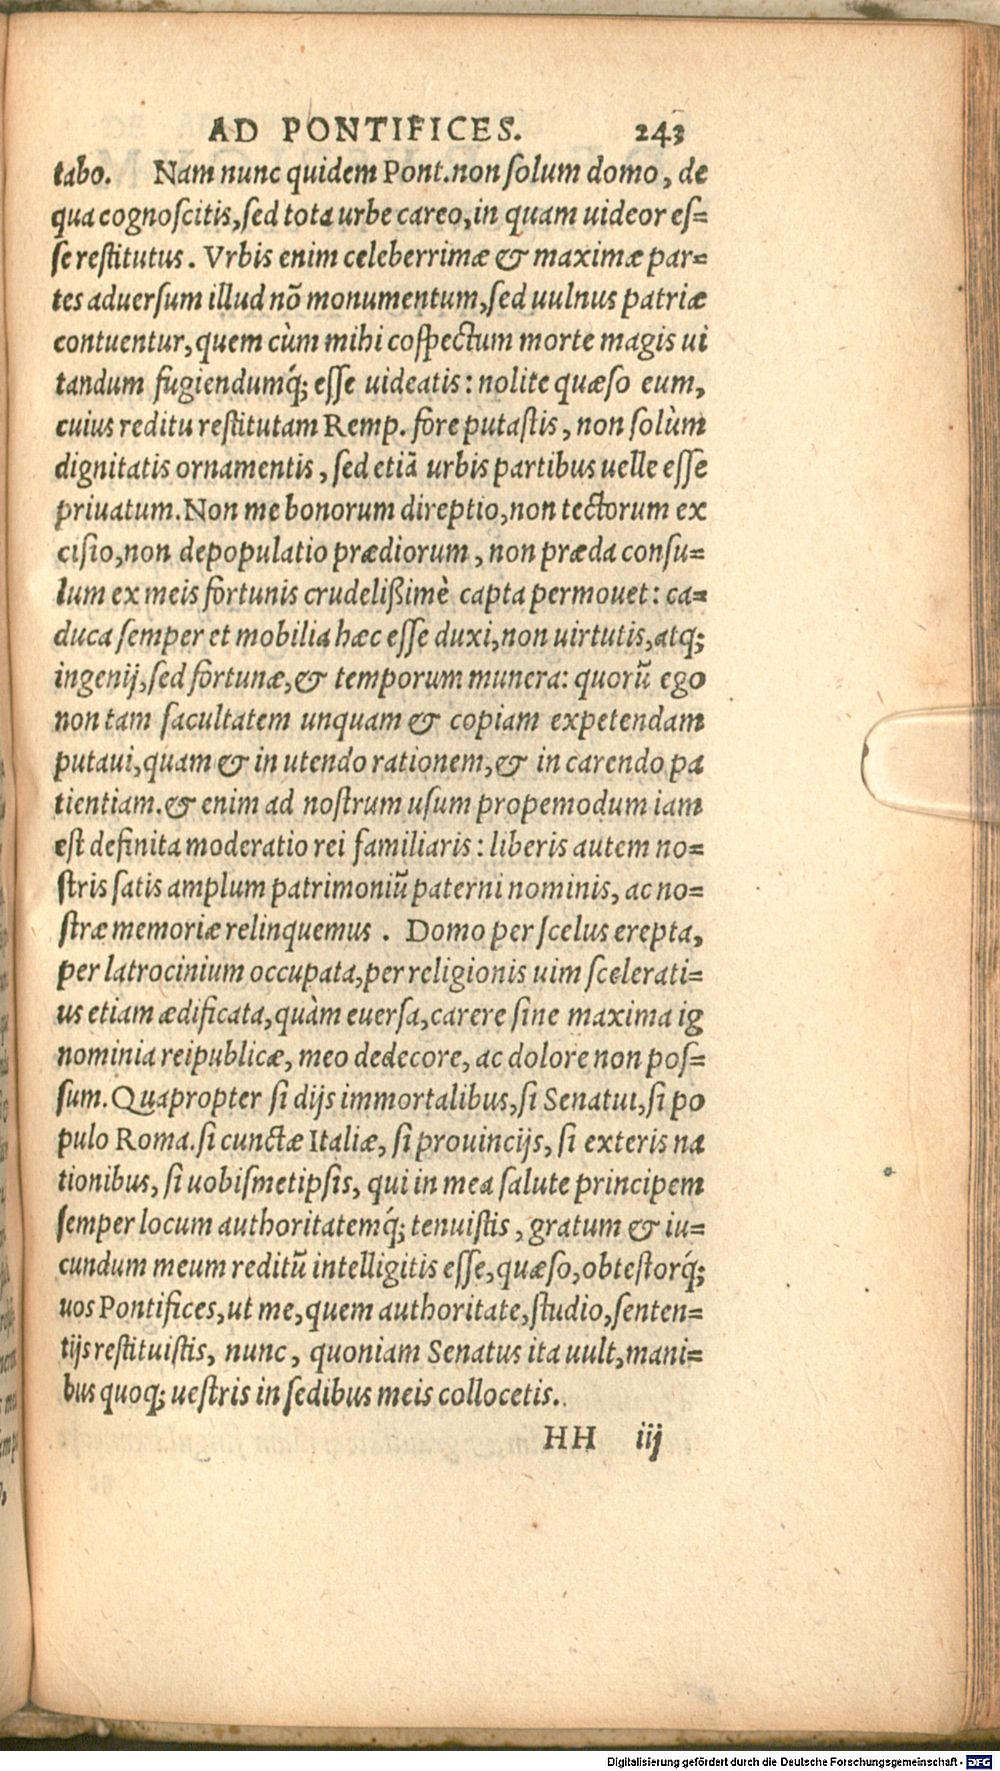 AD PONTIFICES. 243
tabo. Nam nunc quidem Pont.non ſolum domo, de
qua cognoſcitis,ſed tota urbe careo,in quam uideor eſ=
ſe reſtitutus. Vrbis enim celeberrimæ & maximæ par=
tes aduerſum illud nõ monumentum,ſed uulnus patriæ
contuentur,quem cùm mihi coſpectum morte magis ui
tandum fugiendumq́; eſſe uideatis: nolite quæſo eum,
cuius reditu reſtitutam Remp. fore putaſtis, non ſolùm
dignitatis ornamentis, ſed etiã urbis partibus uelle eſſe
priuatum.Non me bonorum direptio,non tectorum ex
ciſio,non depopulatio prædiorum, non præda conſu=
lum ex meis fortunis crudelißimè capta permouet: ca=
duca ſemper et mobilia hæc eſſe duxi,non uirtutis,atq;
ingenij,ſed fortunæ,& temporum munera: quorũ ego
non tam facultatem unquam & copiam expetendam
putaui,quam & in utendo rationem,& in carendo pa
tientiam.& enim ad noſtrum uſum propemodum iam
eſt definita moderatio rei familiaris: liberis autem no=
ſtris ſatis amplum patrimoniũ paterni nominis, ac no=
ſtræ memoriæ relinquemus. Domo per ſcelus erepta,
per latrocinium occupata,per religionis uim ſcelerati=
us etiam ædificata,quàm euerſa,carere ſine maxima ig
nominia reipublicæ, meo dedecore, ac dolore non poſ=
ſum.Quapropter ſi dijs immortalibus,ſi Senatui,ſi po
pulo Roma.ſi cunctæ Italiæ, ſi prouincijs, ſi exteris na
tionibus, ſi uobiſmetipſis, qui in mea ſalute principem
ſemper locum authoritatemq́; tenuiſtis, gratum & iu=
cundum meum reditũ intelligitis eſſe,quæſo,obteſtorq́;
uos Pontifices,ut me,quem authoritate,ſtudio,ſenten=
tijs reſtituiſtis, nunc, quoniam Senatus ita uult,mani=
bus quoq; ueſtris in ſedibus meis collocetis.
HH iij
Digitalisierung gefördert durch die Deutsche Forschungsgemeinschaft - DFG